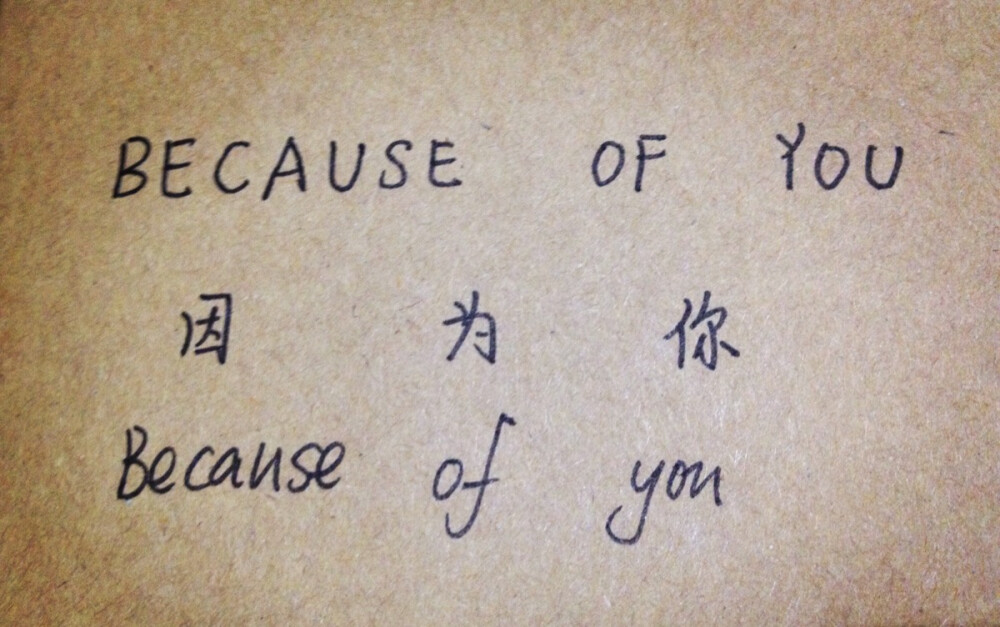 BECAUSE OF YOU
因 为 你
Because of you